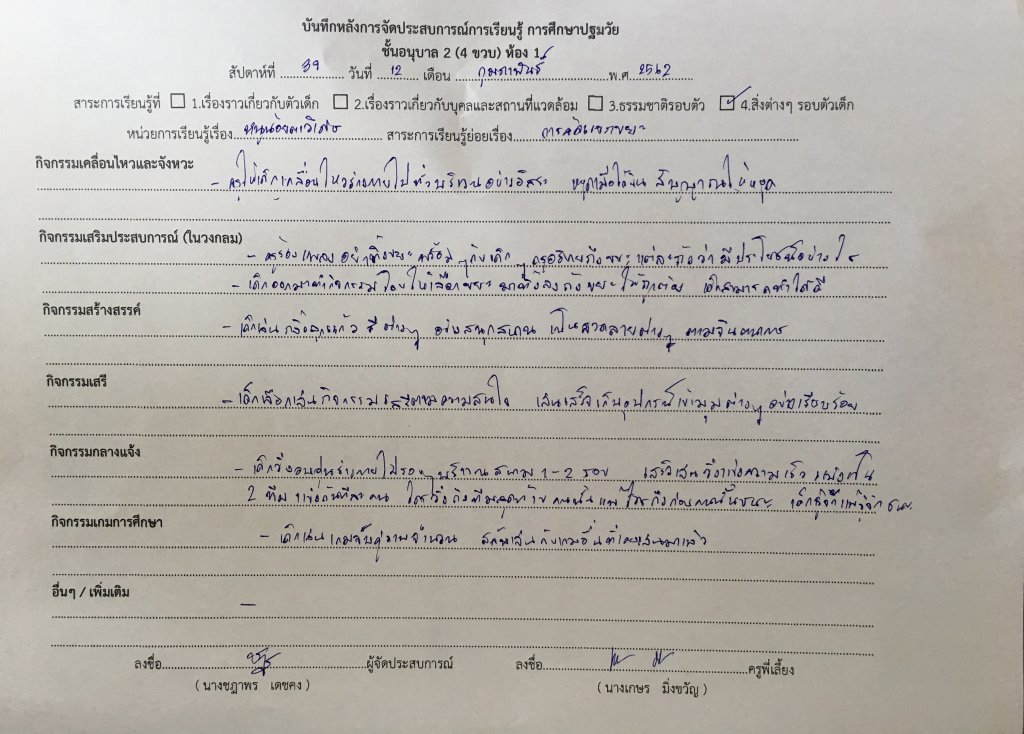 บันทึกหลังการจัดประสบการณ์การเรียนรู้ การศึกษาปฐมวัย
ชั้นอนุบาล 2 (4 ขวบ) ห้อง 1
สัปดาห์ที่ 39 วันที่ 12 เดือน กุมภาพันธ์ พ.ศ 2562
สาระการเรียนรู้ที่ ☐ 1.เรื่องราวเกี่ยวกับตัวเด็ก ☐ 2.เรื่องราวเกี่ยวกับบุคลและสถานที่แวดล้อม ☐ 3.ธรรมชาติรอบตัว ☑ 4.สิ่งต่างๆ รอบตัวเด็ก
หน่วยการเรียนรู้เรื่อง หนูน้อย สาระการเรียนรู้ย่อยเรื่อง การคัดแยกขยะ
กิจกรรมเคลื่อนไหวและจังหวะ
- ครูให้เด็กเคลื่อนไหวร่างกายไปทั่วบริเวณอย่างอิสระ หยุดเมื่อได้ยินสัญญาณให้หยุด
กิจกรรมเสริมประสบการณ์ (ในวงกลม)
- ครูร้องเพลงอย่าทิ้งขยะพร้อมๆกับเด็กๆ ครูอธิบายถังขยะแต่ละถังว่ามีประโยชน์อย่างไร
- เด็กออกมาทำกิจกรรมโดยให้เลือกขยะมาทิ้งลงถังขยะให้ถูกต้อง เด็กสามารถทำได้ดี
กิจกรรมสร้างสรรค์
- เด็กเล่นกลิ้งลูกแก้วสีต่างๆ อย่างสนุกสนาน เป็นลวดลายต่างๆ ตามจินตนาการ
กิจกรรมเสรี
- เด็กเลือกเล่นกิจกรรมเสรีตามความสนใจ เล่นเสร็จเก็บอุปกรณ์เข้ามุมต่างๆ อย่างเรียบร้อย
กิจกรรมกลางแจ้ง
- เด็กวิ่งอบอุ่นร่างกายไปรอบๆ บริเวณสนาม 1-2 รอบ และวิ่งแข่งความเร็ว แบ่งเป็น
2 ทีม แข่งกันทีละคน ใครวิ่งถึงทีมสุดท้ายคนนั้นแพ้ ใครถึงก่อนคนนั้นชนะ เด็กรู้จักแพ้รู้จักชนะ
กิจกรรมเกมการศึกษา
- เด็กเล่นเกมจับคู่ภาพจำนวน สลับเล่นกับเกมอื่นที่เคยเล่นมาแล้ว
อื่นๆ / เพิ่มเติม
-
ลงชื่อ ผู้จัดประสบการณ์ ลงชื่อ ครูพี่เลี้ยง
( นางชฎาพร เดชคง ) ( นางเกษร มิ่งขวัญ )